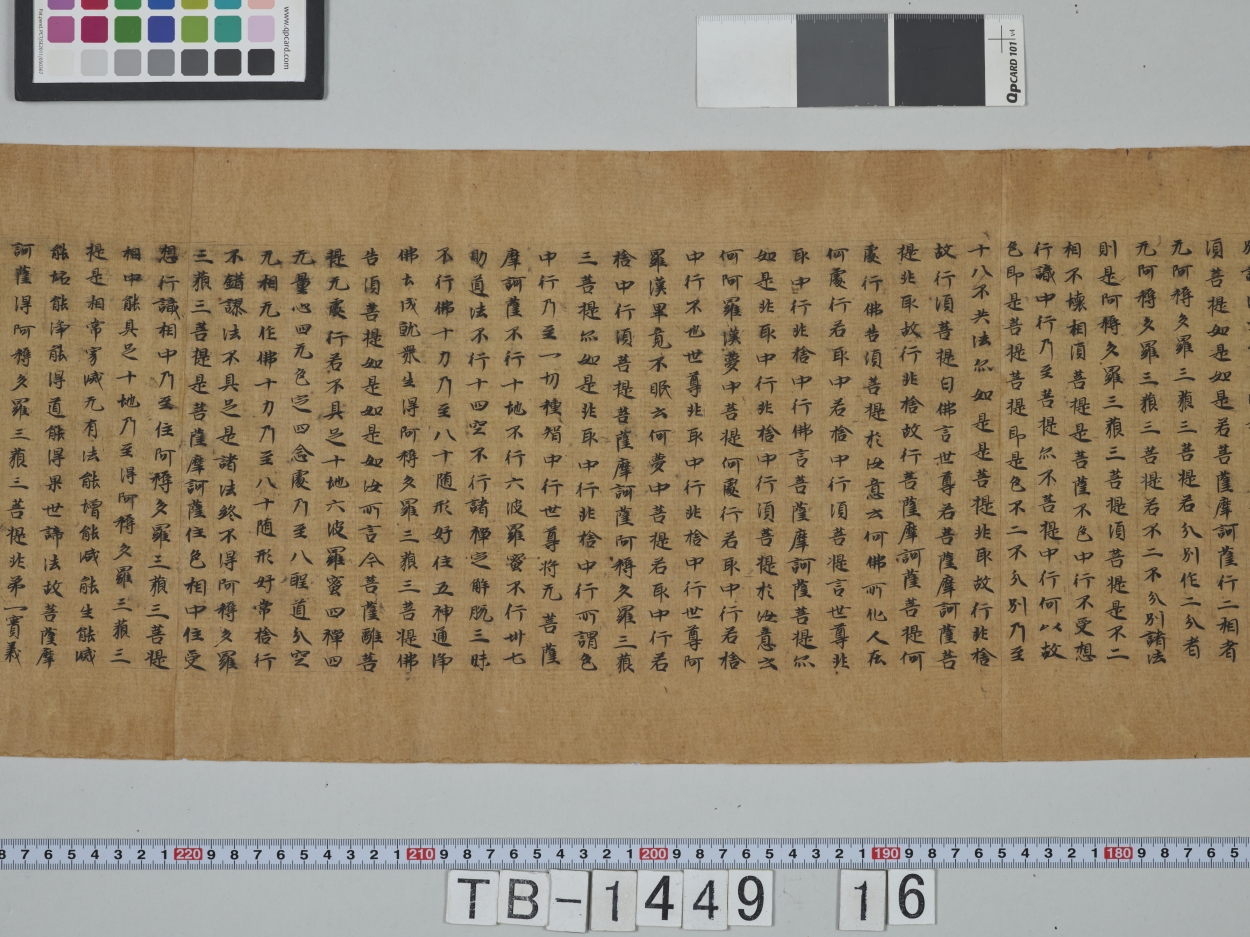 須菩提如是如是若菩薩摩訶薩行二相者
无阿耨多羅三藐三菩提若分別作二分者
无阿耨多羅三藐三菩提若不二不分別諸法
則是阿耨多羅三藐三菩提須菩提是不二
相不壞相須菩提是菩薩不色中行不受想
行識中行乃至菩提尒不菩提中行何以故
色即是菩提菩提即是色不二不分別乃至
十八不共法尒如是是菩提非取故行非捨
故行須菩提白佛言世尊若菩薩摩訶薩菩
提非取故行非捨故行菩薩摩訶薩菩提何
處行佛告須菩提於汝意云何佛所化人在
何處行若取中若捨中行須菩提言世尊非
取中行非捨中行佛言菩薩摩訶薩菩提尒
如是非取中行非捨中行須菩提於汝意云
何阿羅漢夢中菩提何處行若取中行若捨
中行不也世尊非取中行非捨中行世尊阿
羅漢畢竟不眠云何夢中菩提若取中行若
捨中行須菩提菩薩摩訶薩阿耨多羅三藐
三菩提尒如是非取中行非捨中行所謂色
中行乃至一切種智中行世尊將无菩薩
摩訶薩不行十地不行六波羅蜜不行卅七
助道法不行十四空不行諸禪定解脫三昧
不行佛十力乃至八十随形好住五神通淨
佛土成就衆生得阿耨多羅三藐三菩提佛
告須菩提如是如是如汝所言今菩薩雖菩
提无處行若不具足十地六波羅蜜四禪四
无量心四无色定四念處乃至八聖道分空
无相无作佛十力乃至八十随形好常捨行
不錯謬法不具足是諸法終不得阿耨多羅
三藐三菩提是菩薩摩訶薩住色相中住受
想行識相中乃至住阿耨多羅三藐三菩提
相中能具足十地乃至得阿耨多羅三藐三
提是相常寂滅无有法能增能減能生能滅
能垢能淨能得道能得果世諦法故菩薩摩
訶薩得阿耨多羅三藐三菩提非第一實義
www.qpcard.com
QpCARD 101 v4
8 7 6 5 4 3 2 1 220 9 8 7 6 5 4 3 2 1 210 9 8 7 6 5 4 3 2 1 200 9 8 7 6 5 4 3 2 1 190 9 8 7 6 5 4 3 2 1 180 9 8 7 6 5
TB-1449 16